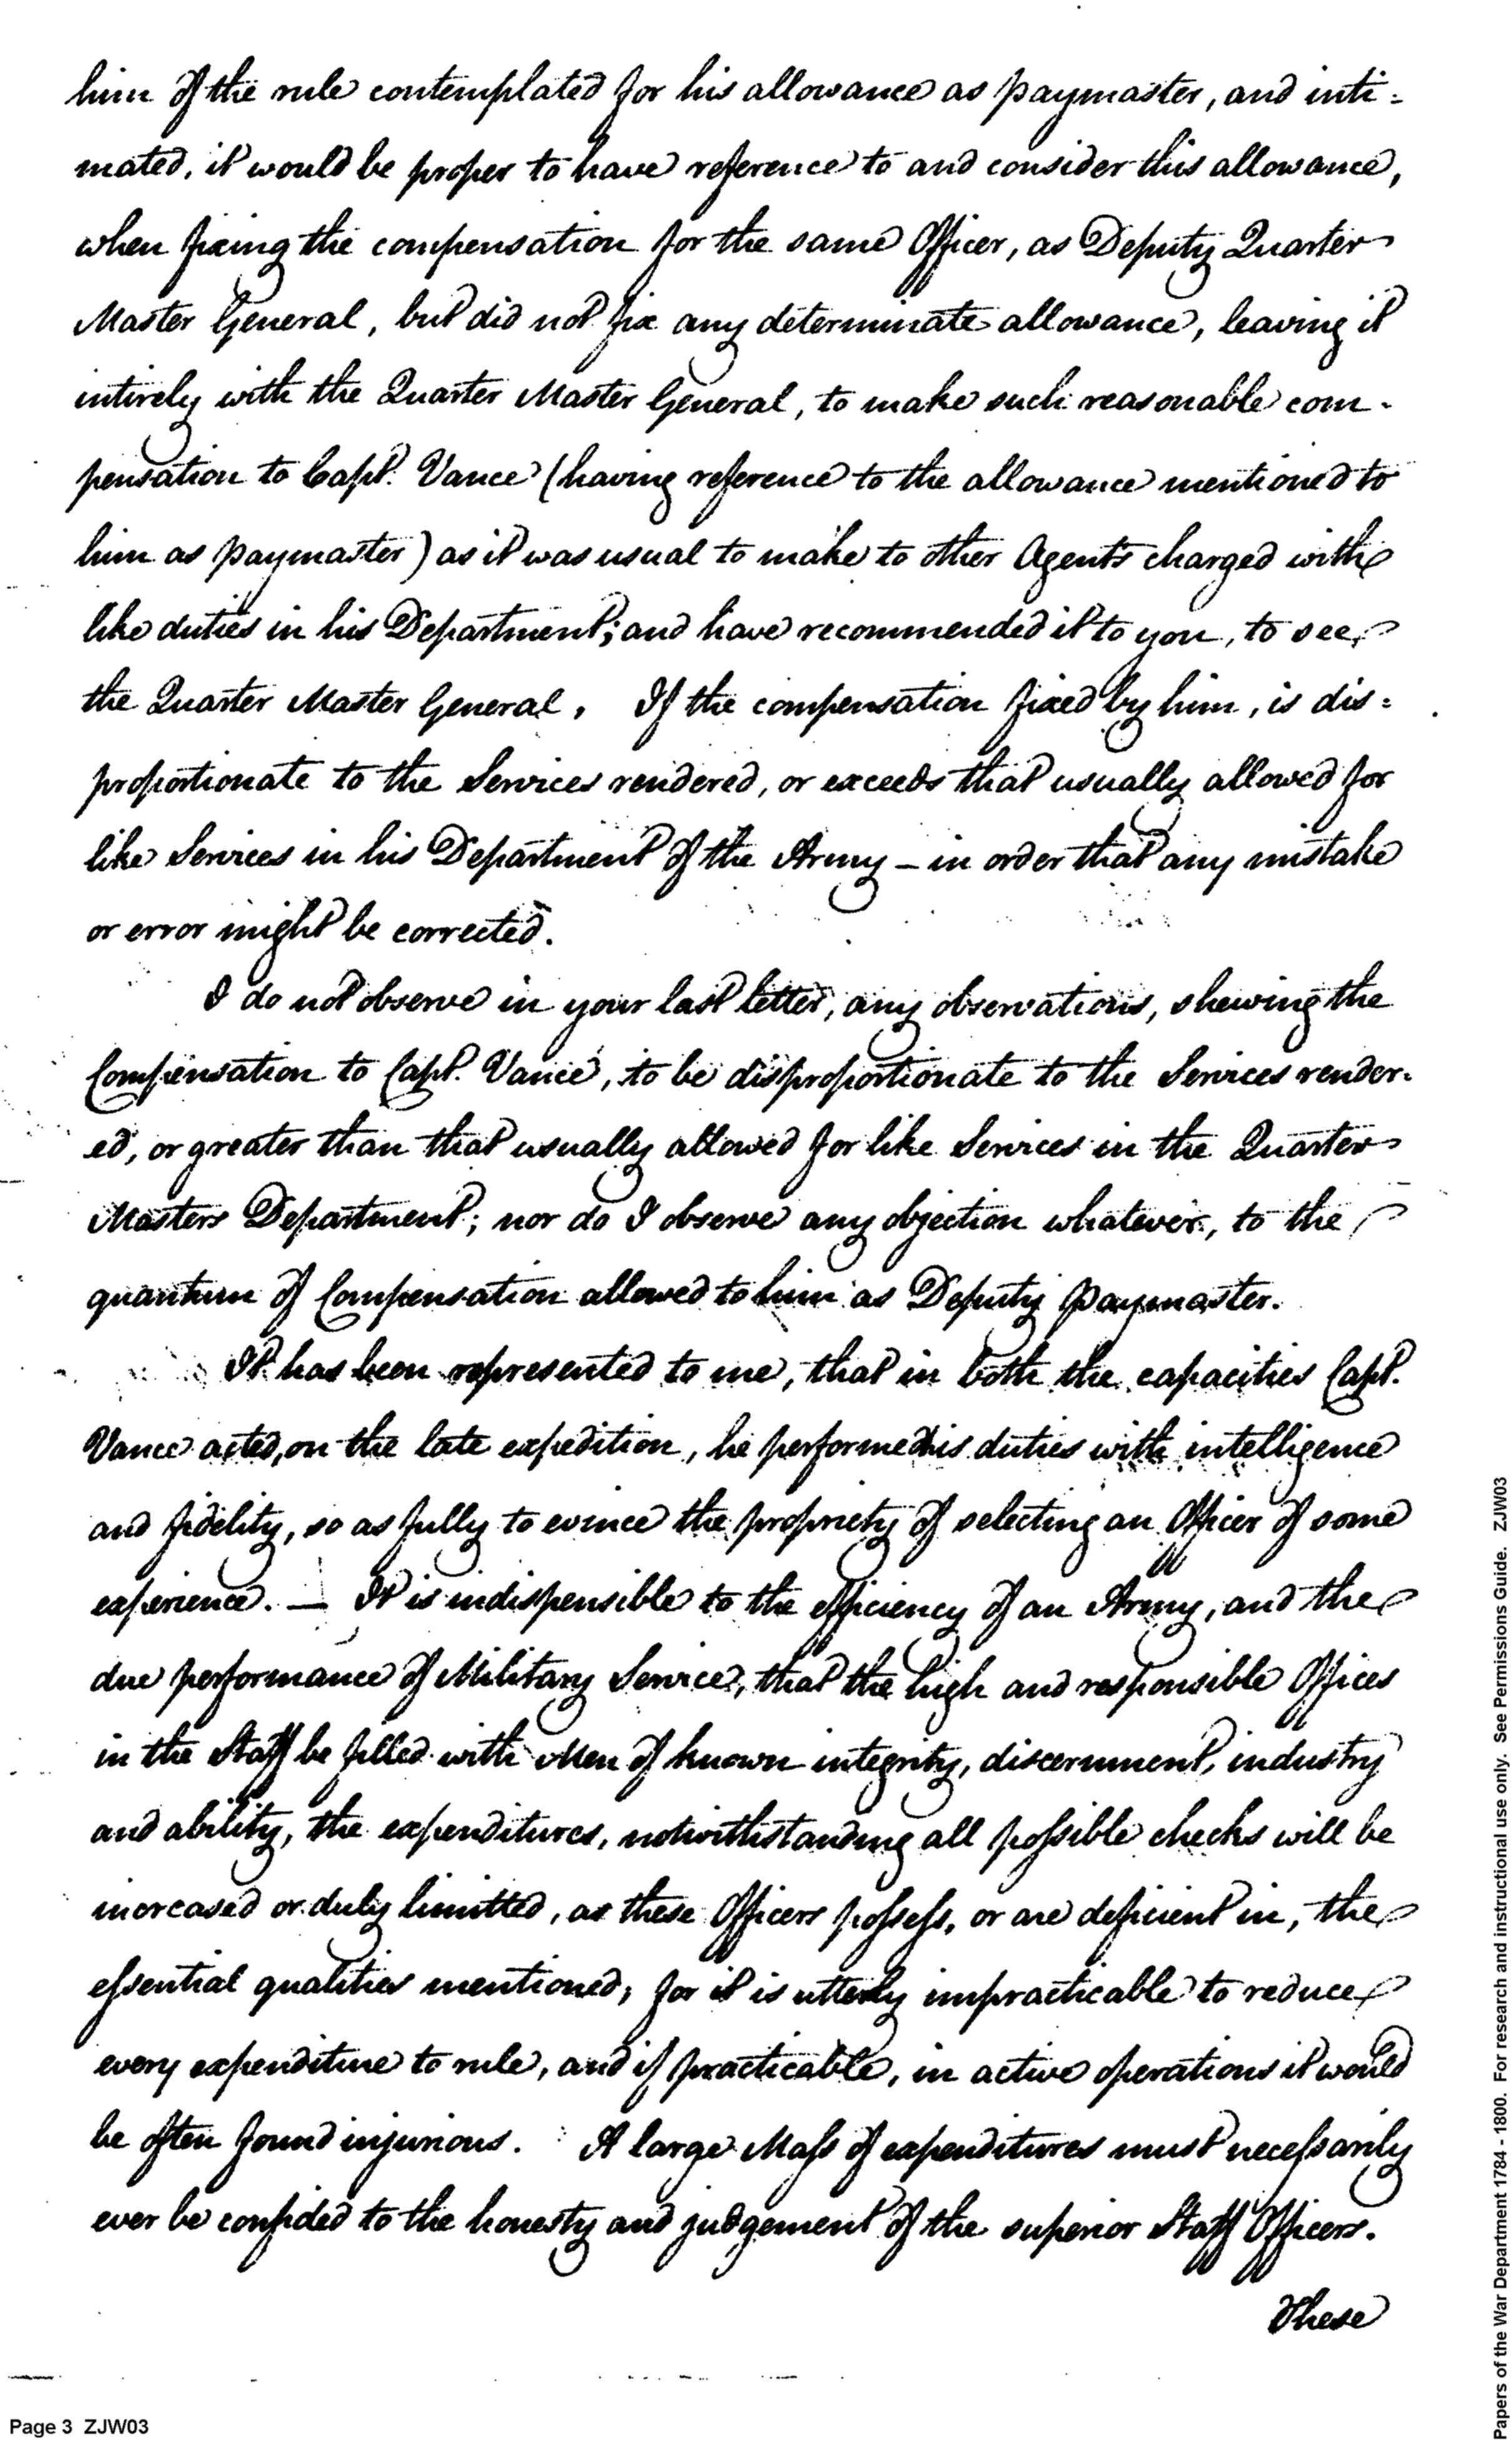 him of the rule contemplated for his allowance as paymaster, and inti=
mated, it would be proper to have reference to and consider this allowance,
when fixing the compensation for the same Officer, as Deputy Quarter
Master General, but did not fix any determinate allowance, leaving it
intirely with the Quarter Master General, to make such reasonable com-
pensation to Capt. Vance (having reference to the allowance mentioned to
him as paymaster) as it was usual to make to other Agents charged with
like duties in his Department; and have recommended it to you, to see,
the Quarter Master General. If the compensation fixed by him, is dis=
proportionate to the Services rendered, or exceeds that usually allowed for
like Services in his Department of the Army – in order that any mistake
or error might be corrected.
I do not observe in your last letter, any observations, shewing the
Compensation to Capt. Vance, to be disproportionate to the Services render-
ed, or greater than that usually allowed for like Services in the Quarter
Masters Department; nor do I observe any objection whatever, to the
quantum of Compensation allowed to him as Deputy Paymaster.
It has been represented to me, that in both the capacities Capt.
Vance acted, on the late expedition, he performed his duties with intelligence
and fidelity, so as fully to evince the propriety of selecting an Officer of some
experience. — It is indispensible to the efficiency of an Army, and the
due performance of Military Service, that the high and responsible Offices
in the Staff be filled with Men of known integrity, discernment, industry
and ability, the expenditures, notwithstanding all possible checks will be
increased or duly limitted, as these Officers possess, or are deficient in, the
essential qualities mentioned; for it is utterly impracticable to reduce
every expenditure to rule, and if practicable, in active operations it would
be often found injurious. A large Mass of expenditures must necessarily
ever be confided to the honesty and judgement of the superior Staff Officers.
These
Page 3 ZJW03
Papers of the War Department 1784 - 1800. For research and instructional use only. See Permissions Guide. ZJW03